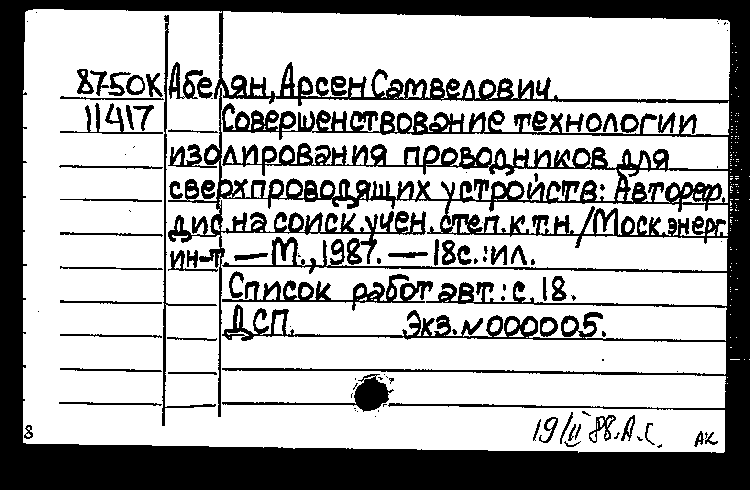 87-50К Абелян, Арсен Самвелович.
11417 Совершенствование технологии
изолирования проводников для
сверхпроводящих устройств: Автореф.
дис. на соиск. учен. степ. к.т.н. / Моск. энерг.
ин-т. — М., 1987. — 18с.: ил.
Список работ авт.: с. 18.
ДСП. Экз. № 000005.
19/II 88. А.С. АК
8